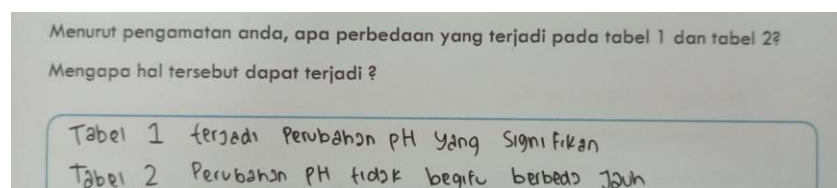 Menurut pengamatan anda, apa perbedaan yang terjadi pada tabel 1 dan tabel 2?
Mengapa hal tersebut dapat terjadi ?
Tabel 1 terjadi Perubahan pH yang Signifikan
Tabel 2 Perubahan PH tidak begitu berbeda Jauh